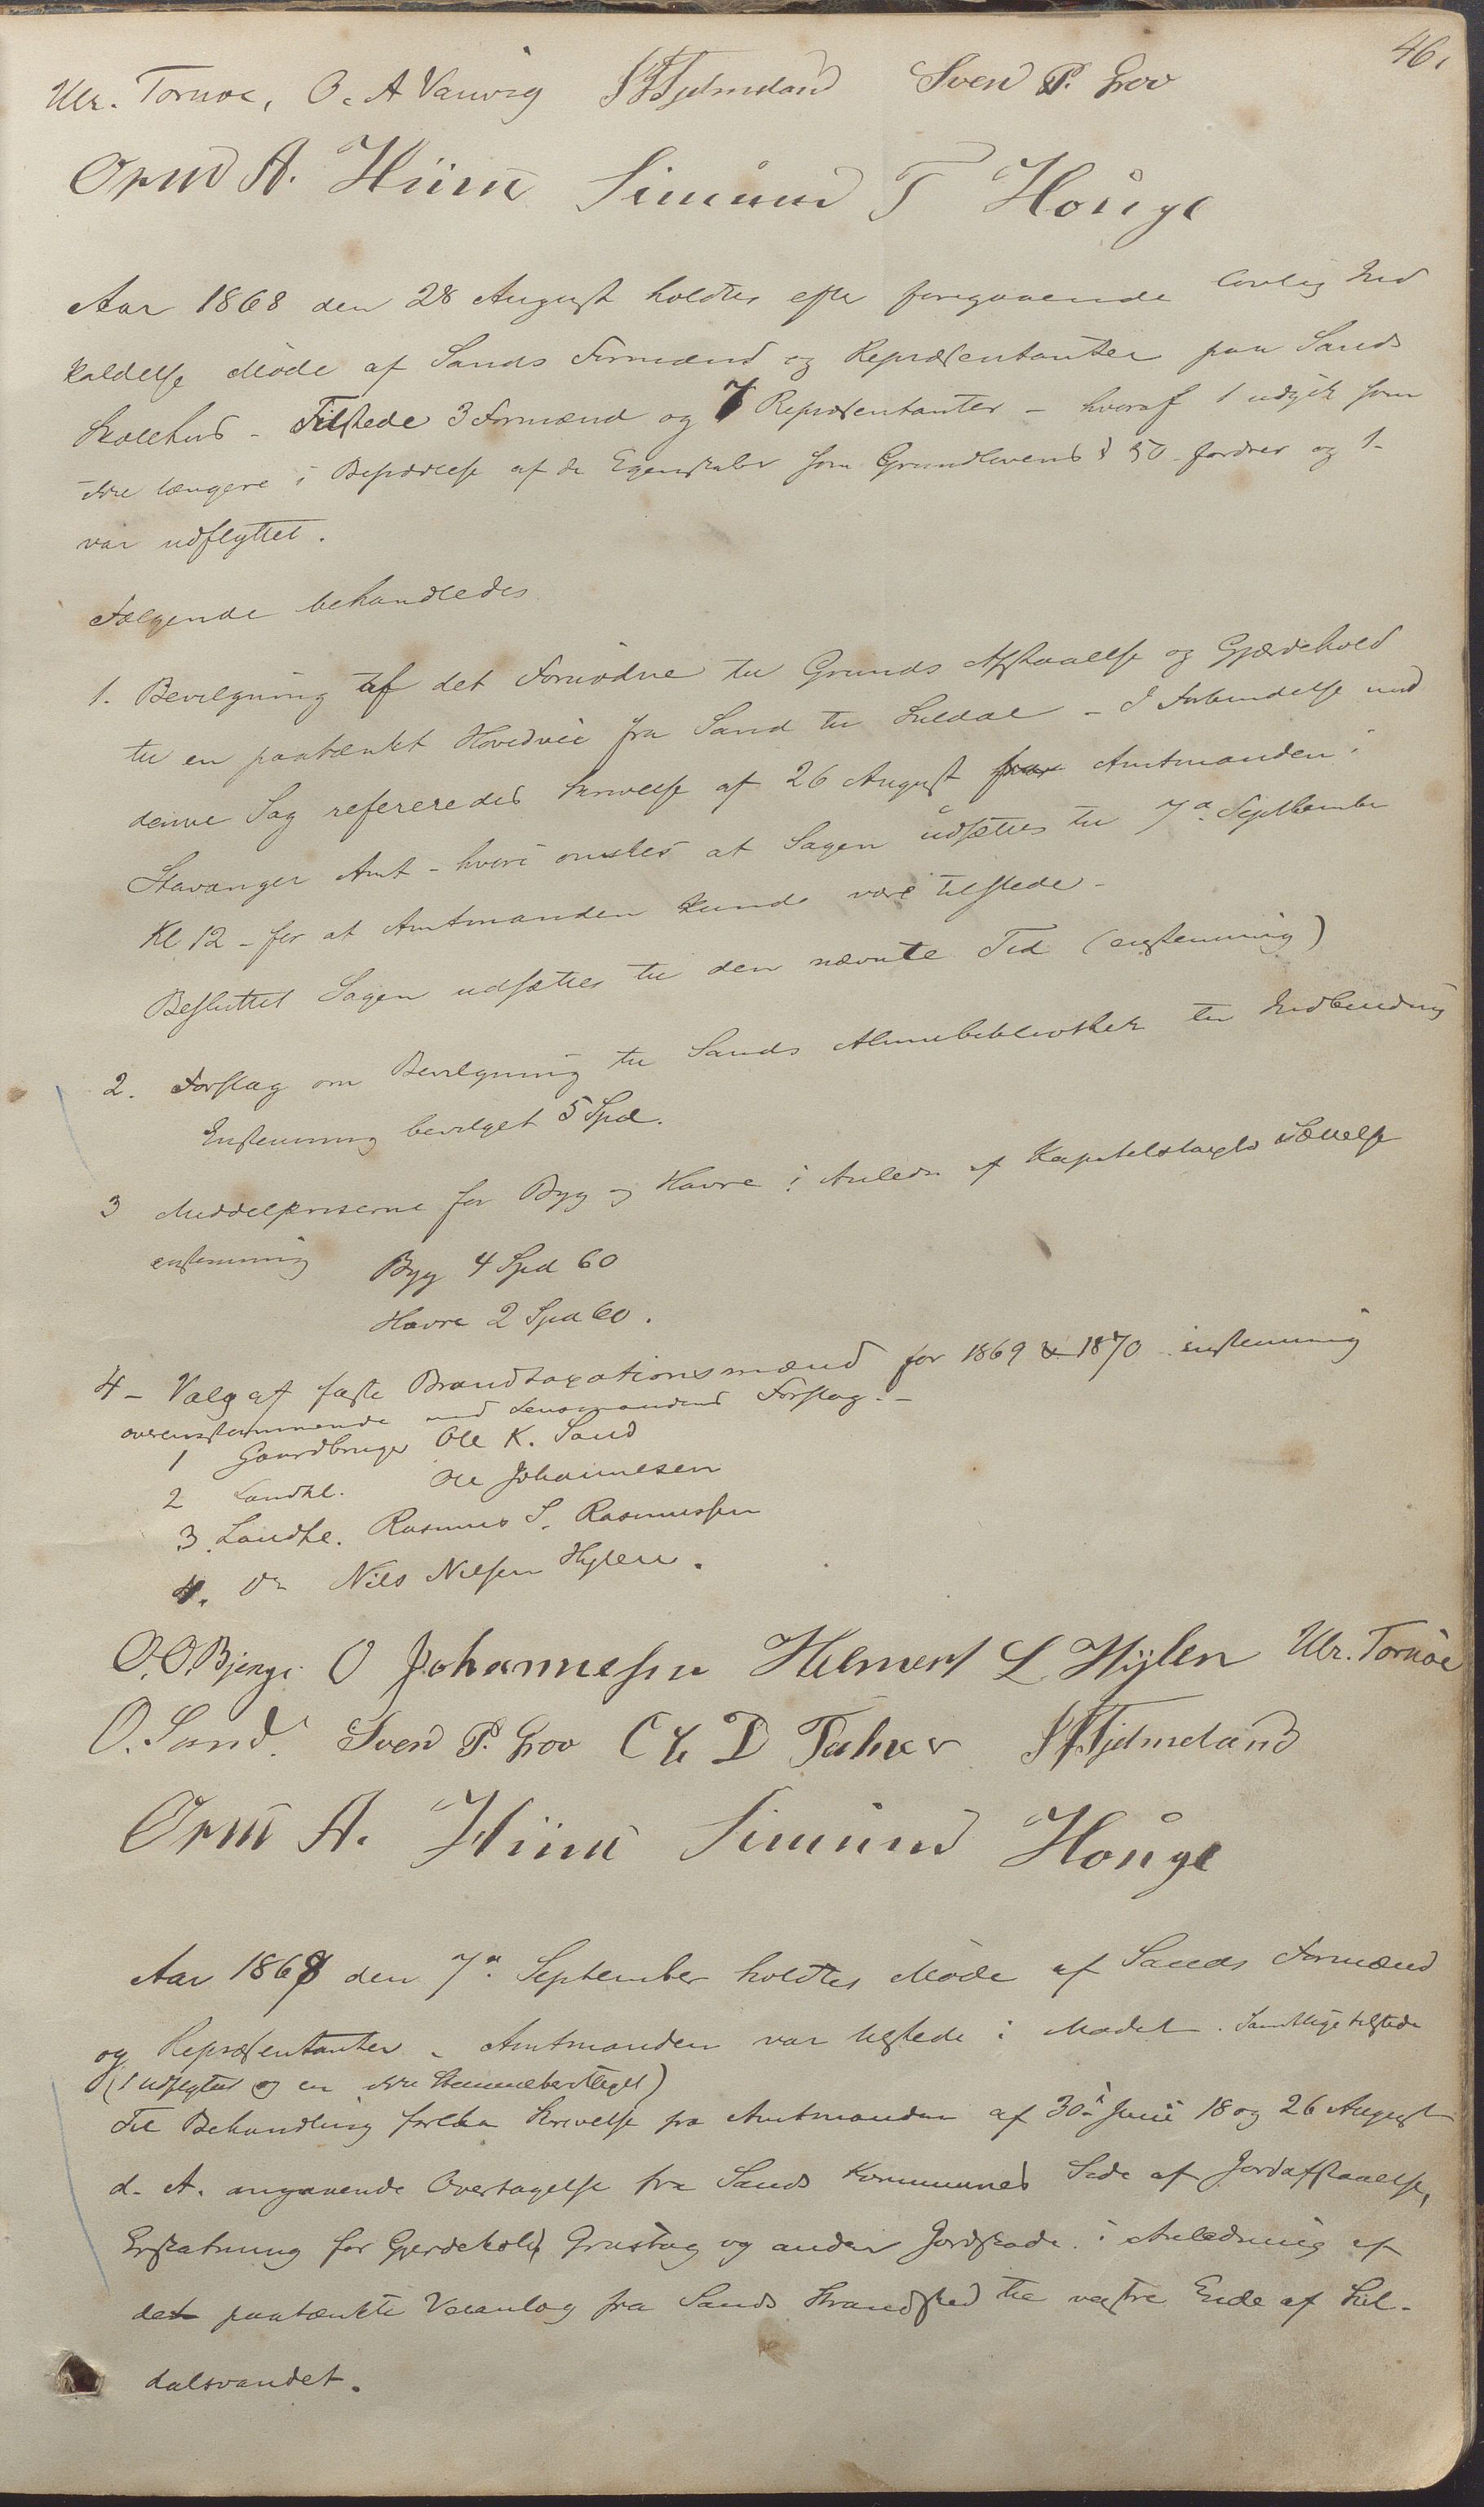 46.
Ulr. Tornøe, O. A Vanvig S F Tjelmeland Sven P. Grov
Orm A. Hiim Simund T Houge
Aar 1868 den 28 August holdtes efter foregaaende lovlig Ind
kaldelse Møde af Sands Formænd og Repræsentanter paa Sands
Skolehus - Tilstede 3 Formænd og 7 Repræsentanter - hvoraf 1 udgik som
ikke længere i Besiddelse af de Egenskaber som Grundlovens § 50 fordrer og 1-
var udflyttet.
Følgende behandledes
1. Bevilgning af det Fornødne til Grunds Afstaaelse og Gjærdehold
til en paatænkt Hovedvei fra Sand til Suldal - I Forbindelse med
denne Sag refereredes Skrivelse af 26 August fra Amtmanden i
Stavanger Amt - hvori ønskes at Sagen udsættes til 7de September
Kl 12 - for at Amtmanden kunde være tilstede -
Besluttet Sagen udsættes til den nævnte Tid (enstemmig)
2. Forslag om Bevilgning til Sands Almuebibliothek til Indbinding
Enstemmig bevilget 5 Spd.
3 Middelpriserne for Byg og Havre i Anledn af Kapitelstaxts Sættelse
enstemmig Byg 4 Spd 60
Havre 2 Spd 60.
4 - Valg af faste Brandtaxationsmænd for 1869 & 1870 enstemmig
overensstemmende med Lensmandens Forslag. -
1 Gaardbruger Ole K. Sand
2 Landhl. Ole Johannesen
3. Landhl. Rasmus S. Rasmussen
4. Do Nils Nilsen Hylen.
O. O. Bjerge O Johannesen Helmert L Hylen Ulr. Tornøe
O. Sand. Sven P. Grov Ch D Tahner S F Tjelmeland
Orm A. Hiim Simund Houge
Aar 1868 den 7de September holdtes Møde af Sands Formænd
og Repræsentanter - Amtmanden var tilstede i Mødet. Samtlige tilstede
(1 udflyttet og en ikke Stemmeberettiget)
Til Behandling forelaa Skrivelse fra Amtmanden af 30te Juni 18 og 26 August
d. A. angaaende Overtagelse fra Sands Kommunes Side af Jordafstaaelse,
Erstatning for Gjerdehold, Grustag og anden Jordskade i Anledning af
det paatænkte Veianlæg fra Sands Strandsted til vestre Ende af Sul-
dalsvandet.